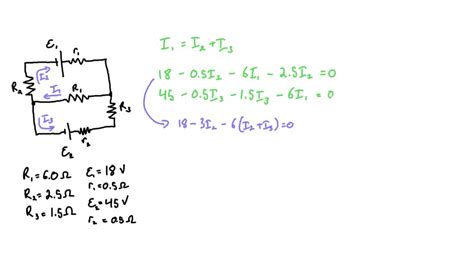 ε₁
r₁
I₂
R₂
I₁
R₁
R₃
I₃
ε₂
r₂
R₁ = 6.0 Ω ε₁ = 18 V
r₁ = 0.5 Ω
R₂ = 2.5 Ω
ε₂ = 45 V
R₃ = 1.5 Ω
r₂ = 0.5 Ω
I₁ = I₂ + I₃
18 - 0.5I₂ - 6I₁ - 2.5I₂ = 0
45 - 0.5I₃ - 1.5I₃ - 6I₁ = 0
18 - 3I₂ - 6(I₂ + I₃) = 0